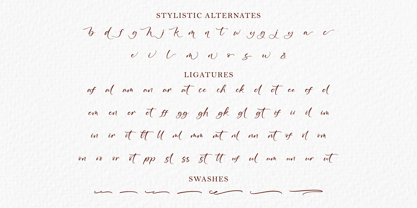 STYLISTIC ALTERNATES
b d f g h j k m n t w y g j y a c
e i l m n o s w s
LIGATURES
af al am an ar at ce ch ck cl ct ee ef el
em en er et ff gg gh gk gl gt if ii il im
in ir it tt ll nl mm mt nl nn nt of ol om
on io or ot pp sl ss st tt uf ul um un ur ut
SWASHES